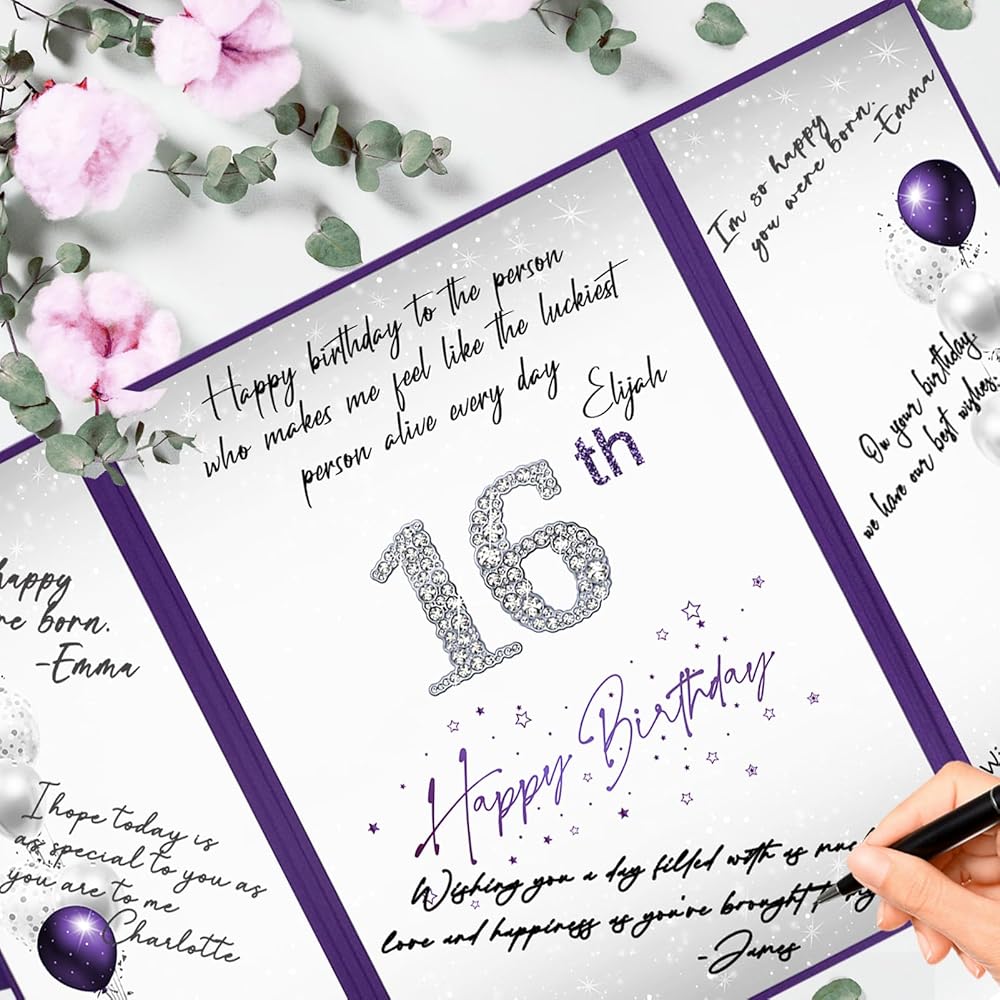 happy
re born.
-Emma
I hope today is
as special to you as
you are to me
Charlotte
Happy birthday to the person
who makes me feel like the luckiest
person alive every day
Elijah
16th
Happy Birthday
Wishing you a day filled with as muc
love and happiness as you're brought
-James
I'm so happy
you were born.
-Emma
On your birthday,
we have our best wishes
Wi